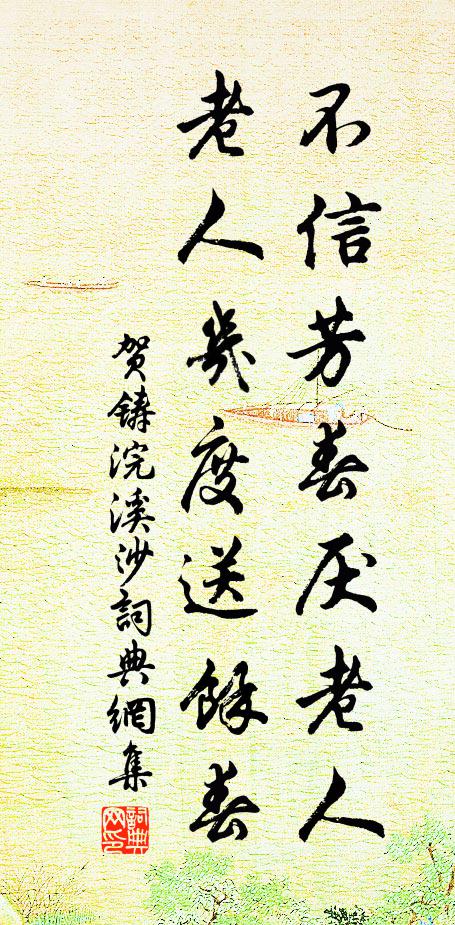 不信芳春厌老人
老人幾度送餘春
贺铸浣溪沙詞典網集
詞典网印